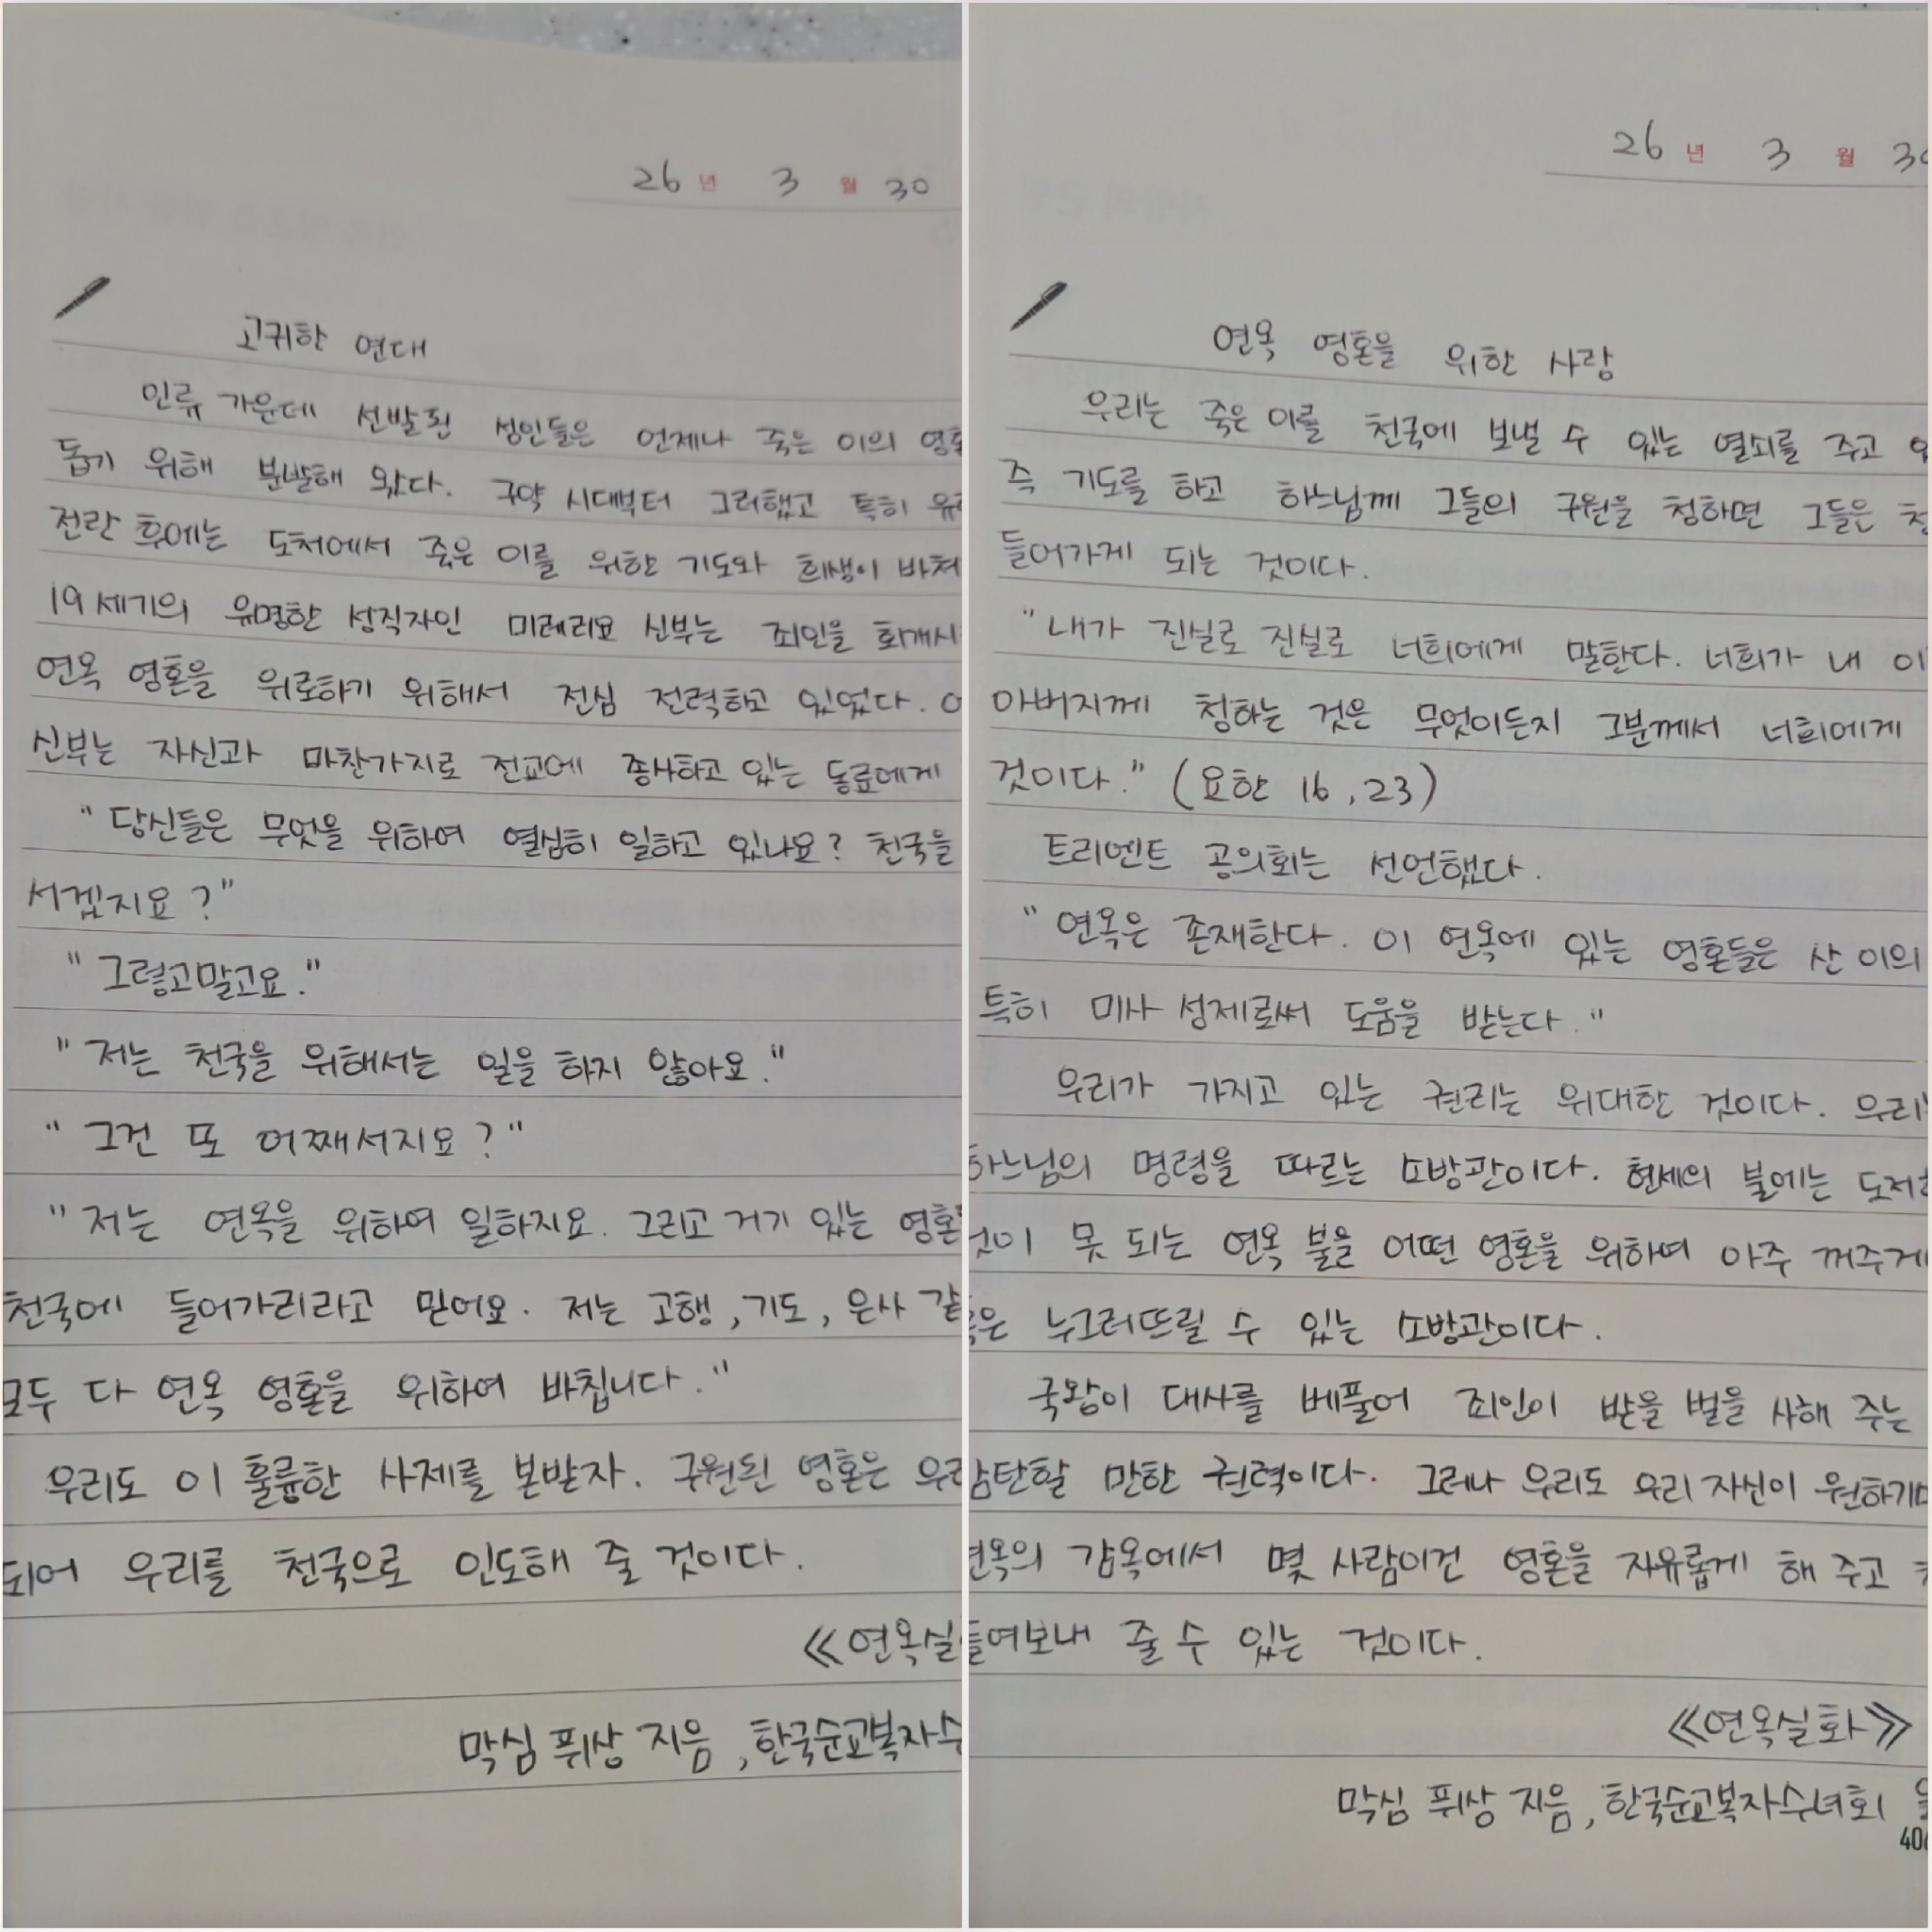 26 년 3 월 30
고귀한 연대
인류 가운데 선발된 성인들은 언제나 죽은 이의
돕기 위해 분발해 왔다. 구약 시대부터 그러했고 특히
전란 후에는 도처에서 죽은 이를 위한 기도와 희생이 바쳐
19세기의 유명한 성직자인 미레리요 신부는 죄인을 회개시
연옥 영혼을 위로하기 위해서 전심 전력하고 있었다.
신부는 자신과 마찬가지로 전교에 종사하고 있는 동료에게
"당신들은 무엇을 위하여 열심히 일하고 있나요? 천국을
서겠지요?"
"그렇고말고요."
"저는 천국을 위해서는 일을 하지 않아요."
"그건 또 어째서지요?"
"저는 연옥을 위하여 일하지요. 그리고 거기 있는 영혼
천국에 들어가리라고 믿어요. 저는 고행, 기도, 은사 같
모두 다 연옥 영혼을 위하여 바칩니다."
우리도 이 훌륭한 사제를 본받자. 구원된 영혼은 우리
되어 우리를 천국으로 인도해 줄 것이다.
《연옥실
막심 퓌상 지음, 한국순교복자수
26 년 3 월 30
연옥 영혼을 위한 사랑
우리는 죽은 이를 천국에 보낼 수 있는 열쇠를 주고
즉 기도를 하고 하느님께 그들의 구원을 청하면 그들은
들어가게 되는 것이다.
"내가 진실로 진실로 너희에게 말한다. 너희가 내 이
아버지께 청하는 것은 무엇이든지 그분께서 너희에게
것이다." (요한 16, 23)
트리엔트 공의회는 선언했다.
"연옥은 존재한다. 이 연옥에 있는 영혼들은 산 이의
특히 미사 성제로써 도움을 받는다."
우리가 가지고 있는 권리는 위대한 것이다. 우리
하느님의 명령을 따르는 소방관이다. 현세의 불에는 도저히
것이 못 되는 연옥 불을 어떤 영혼을 위하여 아주 꺼주게
혹은 누그러뜨릴 수 있는 소방관이다.
국왕이 대사를 베풀어 죄인이 받을 벌을 사해 주는
감탄할 만한 권력이다. 그러나 우리도 우리 자신이 원하기만
연옥의 감옥에서 몇 사람이건 영혼을 자유롭게 해 주고
들여보내 줄 수 있는 것이다.
《연옥실화》
막심 퓌상 지음, 한국순교복자수녀회